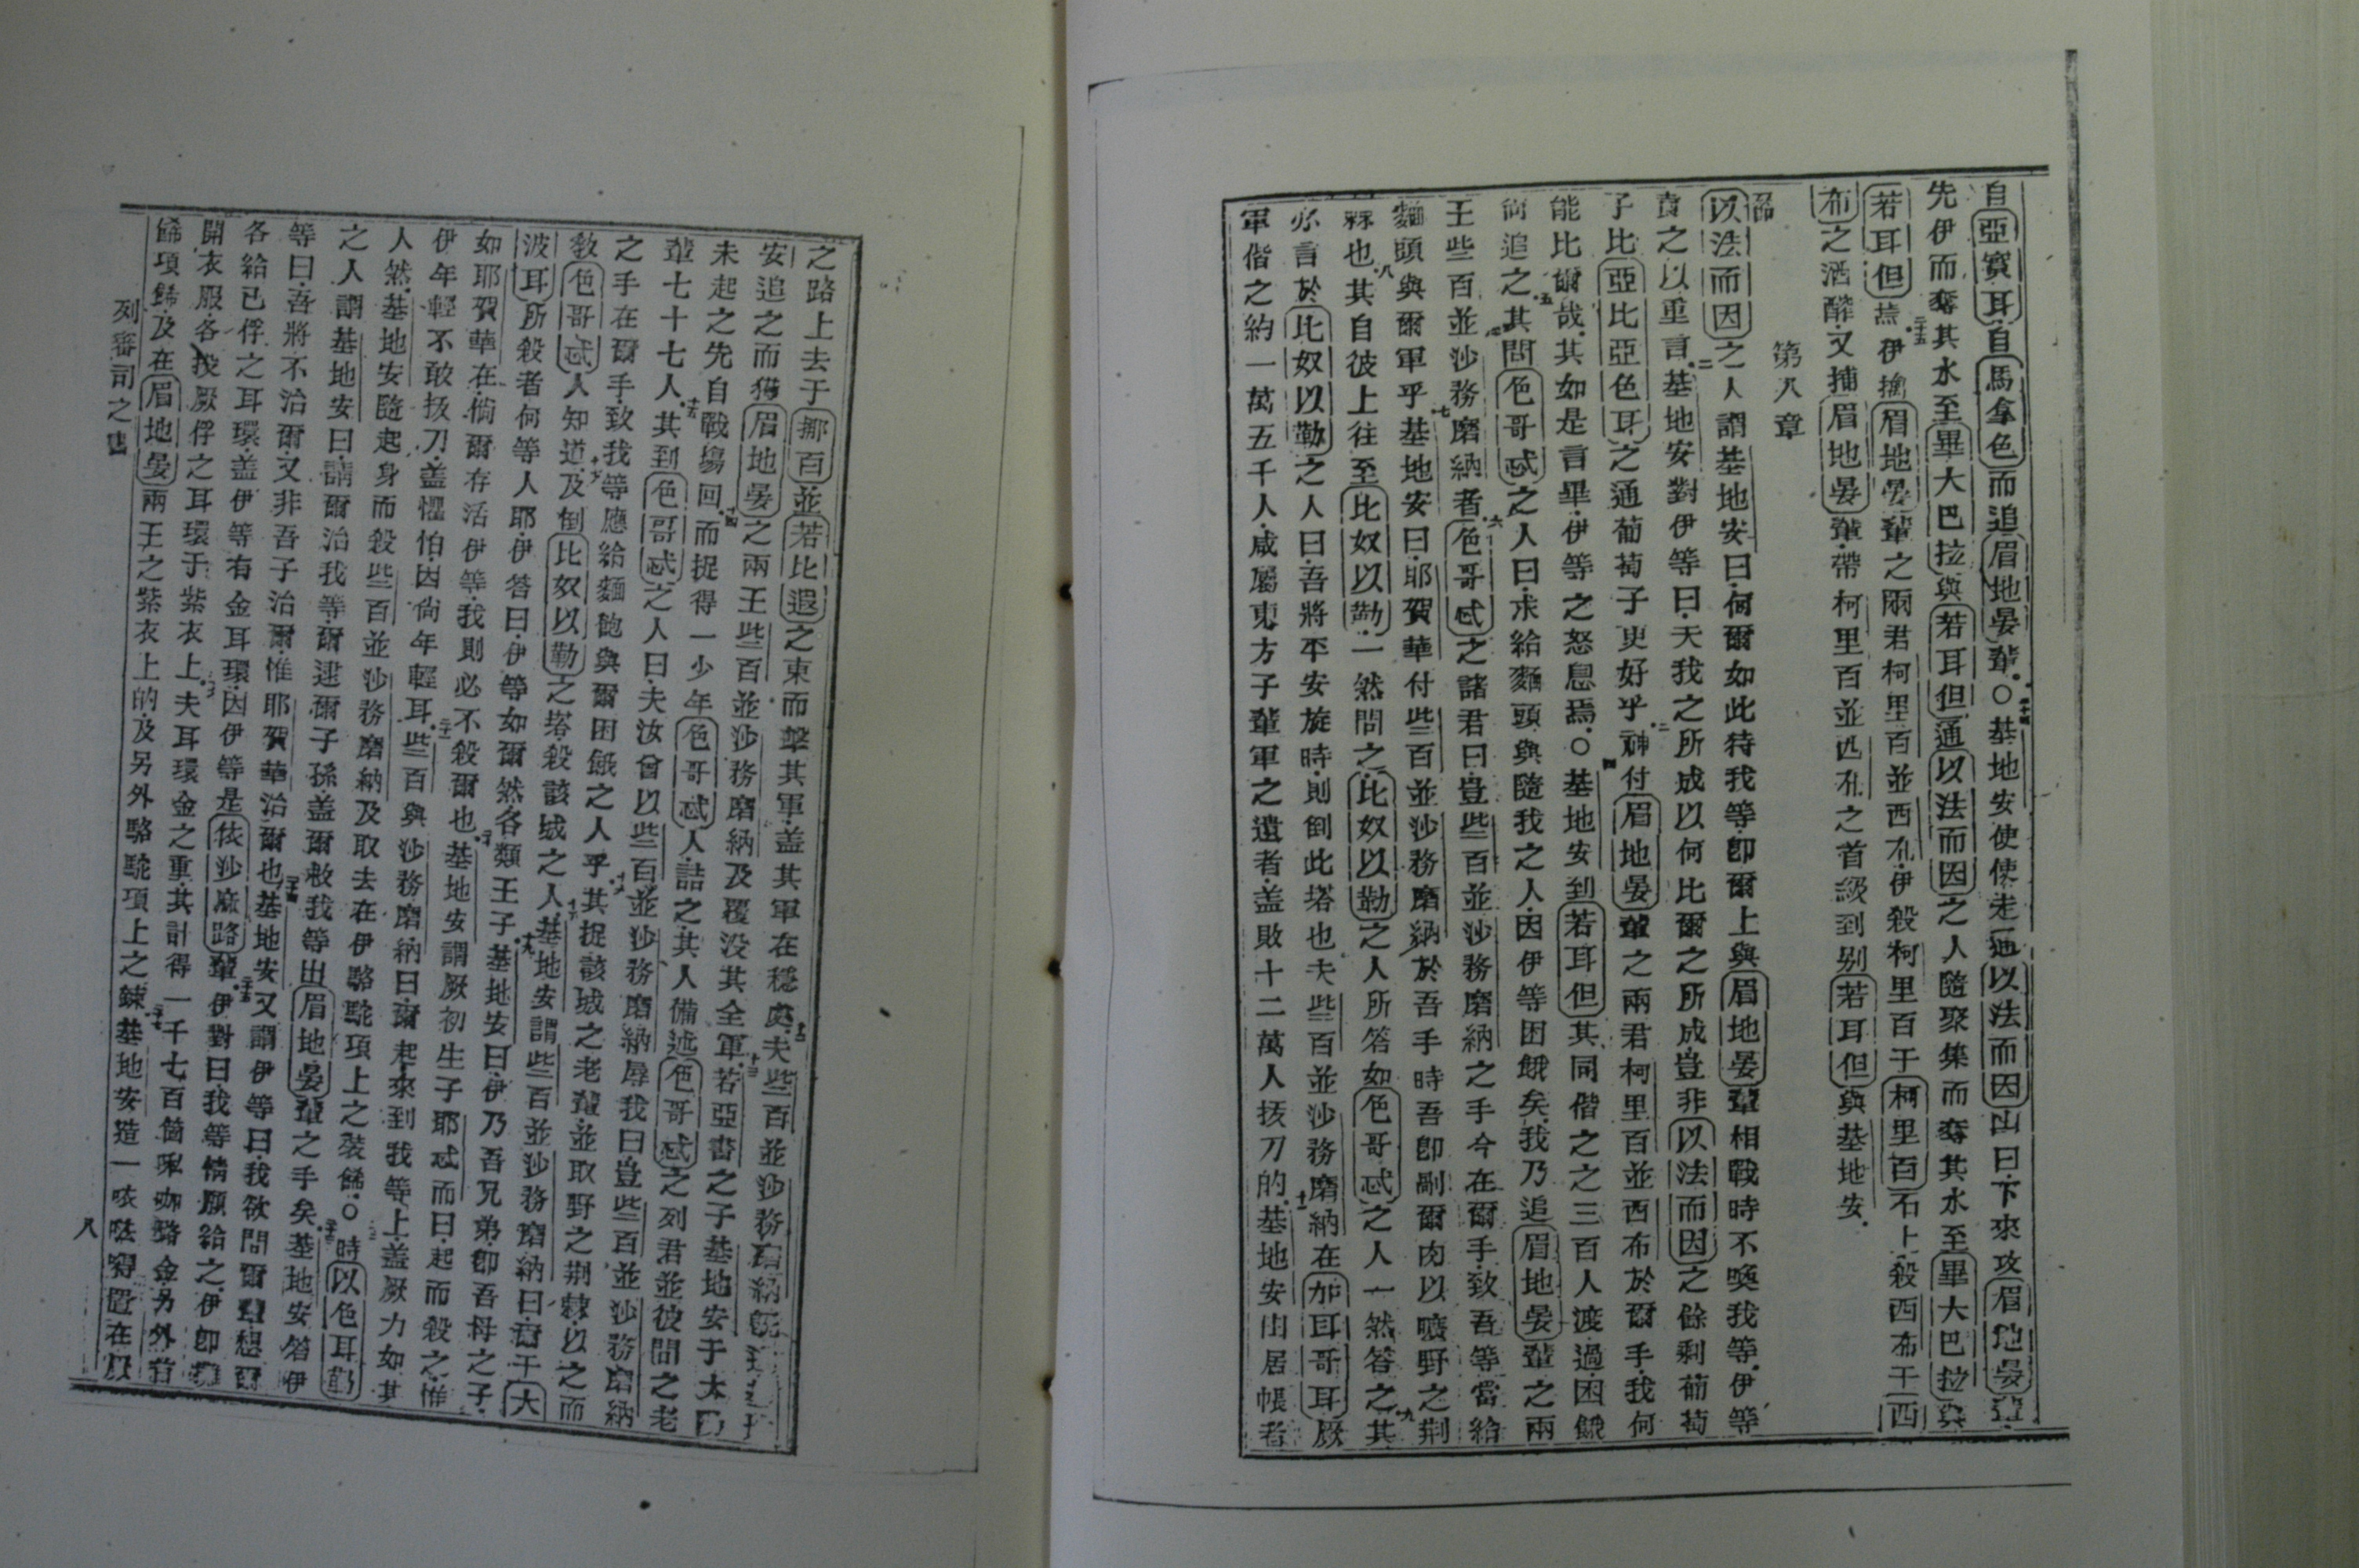 自亞寳耳自馬拿色而追眉地晏輩○基地安使使走通以法而因山曰下來攻眉地晏輩
先伊而奪其水至畢大巴拉與若耳但通以法而因之人隨聚集而奪其水至畢大巴拉與
若耳但焉二十五伊擒眉地晏輩之兩君柯里百並西布伊殺柯里百于柯里百石上殺西布于西
布之酒醡又捕眉地晏輩帶柯里百並西布之首級到別若耳但與基地安
第八章
一節
以法而因之人謂基地安曰何爾如此待我等卽爾上與眉地晏輩相戰時不喚我等伊等
責之以重言二基地安對伊等曰天我之所成以何比爾之所成豈非以法而因之餘剩葡萄
子比亞比亞色耳之通葡萄子更好乎三神付眉地晏輩之兩君柯里百並西布於爾手我何
能比爾哉其如是言畢伊等之怒息焉○四基地安到若耳但其同偕之之三百人渡過困餓
尚追之五其問色哥忒之人曰求給麵頭與隨我之人因伊等困餓矣我乃追眉地晏輩之兩
王些百並沙務磨納者六色哥忒之諸君曰豈些百並沙務磨納之手今在爾手致吾等當給
麵頭與爾軍乎七基地安曰耶賀華付些百並沙務磨納於吾手時吾卽副爾肉以曠野之荆
棘也八其自彼上往至比奴以勒一然問之比奴以勒之人所答如色哥忒之人一然答之九其
亦言於比奴以勒之人曰吾將平安旋時則倒此塔也十夫些百並沙務磨納在加耳哥耳厥
軍偕之約一萬五千人咸屬東方子輩軍之遺者盖敗十二萬人拔刀的十一基地安由居帳者
之路上去于挪百並若比遐之東而擊其軍盖其軍在穩處十二夫些百並沙務磨納
安追之而獲眉地晏之兩王些百並沙務磨納及覆没其全軍十三若亞書之子基地安于太
未起之先自戰塲回十四而捉得一少年色哥忒人詰之其人備述色哥忒之列君並彼間之老
輩七十七人十五其到色哥忒之人曰夫汝曾以些百並沙務磨納辱我曰豈些百並沙務磨納
之手在爾手致我等應給麵飽與爾困餓之人乎十六其捉該城之老輩並取野之荆棘以之而
敎色哥忒人知道十七及倒比奴以勒之塔殺該城之人十八基地安謂些百並沙務磨納曰爾于大
波耳所殺者何等人耶伊答曰伊等如爾然各類王子十九基地安曰伊乃吾兄弟卽吾母之子
如耶賀華在倘爾存活伊等我則必不殺爾也二十基地安謂厥初生子耶忒而曰起而殺之惟
伊年輕不敢拔刀盖懼怕因尙年輕耳二十一些百與沙務磨納曰爾起來到我等上盖厥力如其
人然基地安隨起身而殺些百並沙務磨納及取去在伊駱駝項上之裝餙○二十二時以色耳勒
之人謂基地安曰請爾治我等爾逮爾子孫盖爾救我等出眉地晏輩之手矣二十三基地安答伊
等曰吾將不治爾又非吾子治爾惟耶賀華治爾也二十四基地安又謂伊等曰我欲問爾輩想爾
各給己俘之耳環盖伊等有金耳環因伊等是依沙麻路輩二十五伊對曰我等情願給之伊卽
開衣服各投厥俘之耳環于紫衣上二十六夫耳環金之重其計得一千七百箇咊咖路金另外
餙項餙及在眉地晏兩王之紫衣上的及另外駱駝項上之鍊二十七基地安造一咴咈嘚置在厥
列審司之書
八